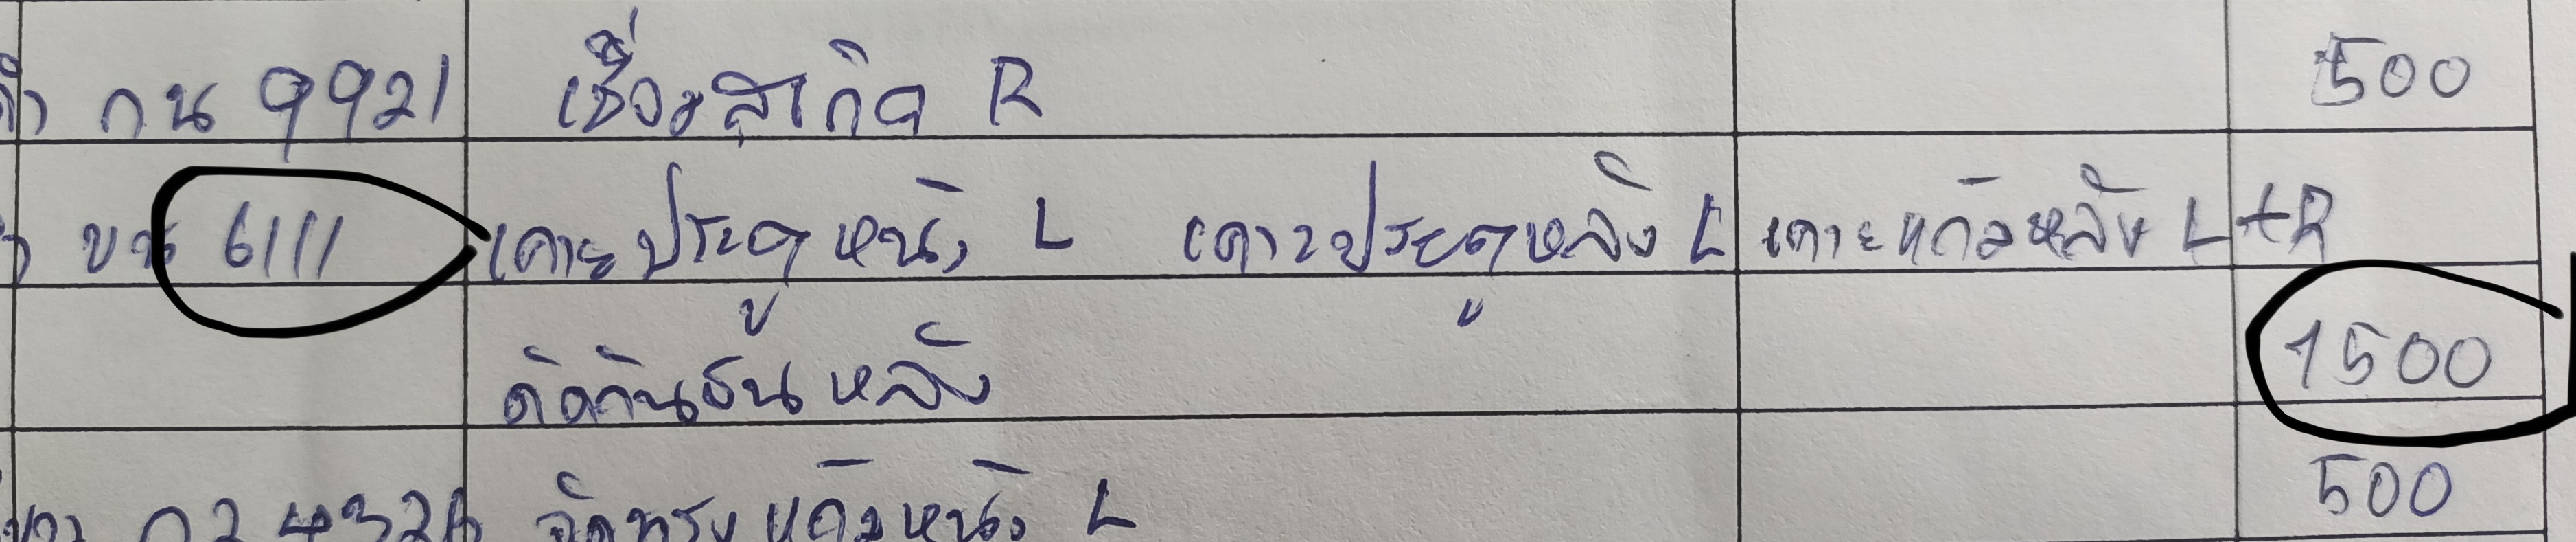 กน 9921 เชื่อมสเกิด R 500
ขน 6111 เคาะประตูหน้า L เคาะประตูหลัง L เคาะแก้มหลัง L+R
ดัดกันชนหลัง 1500
จัดทรงแก้มหน้า L 500